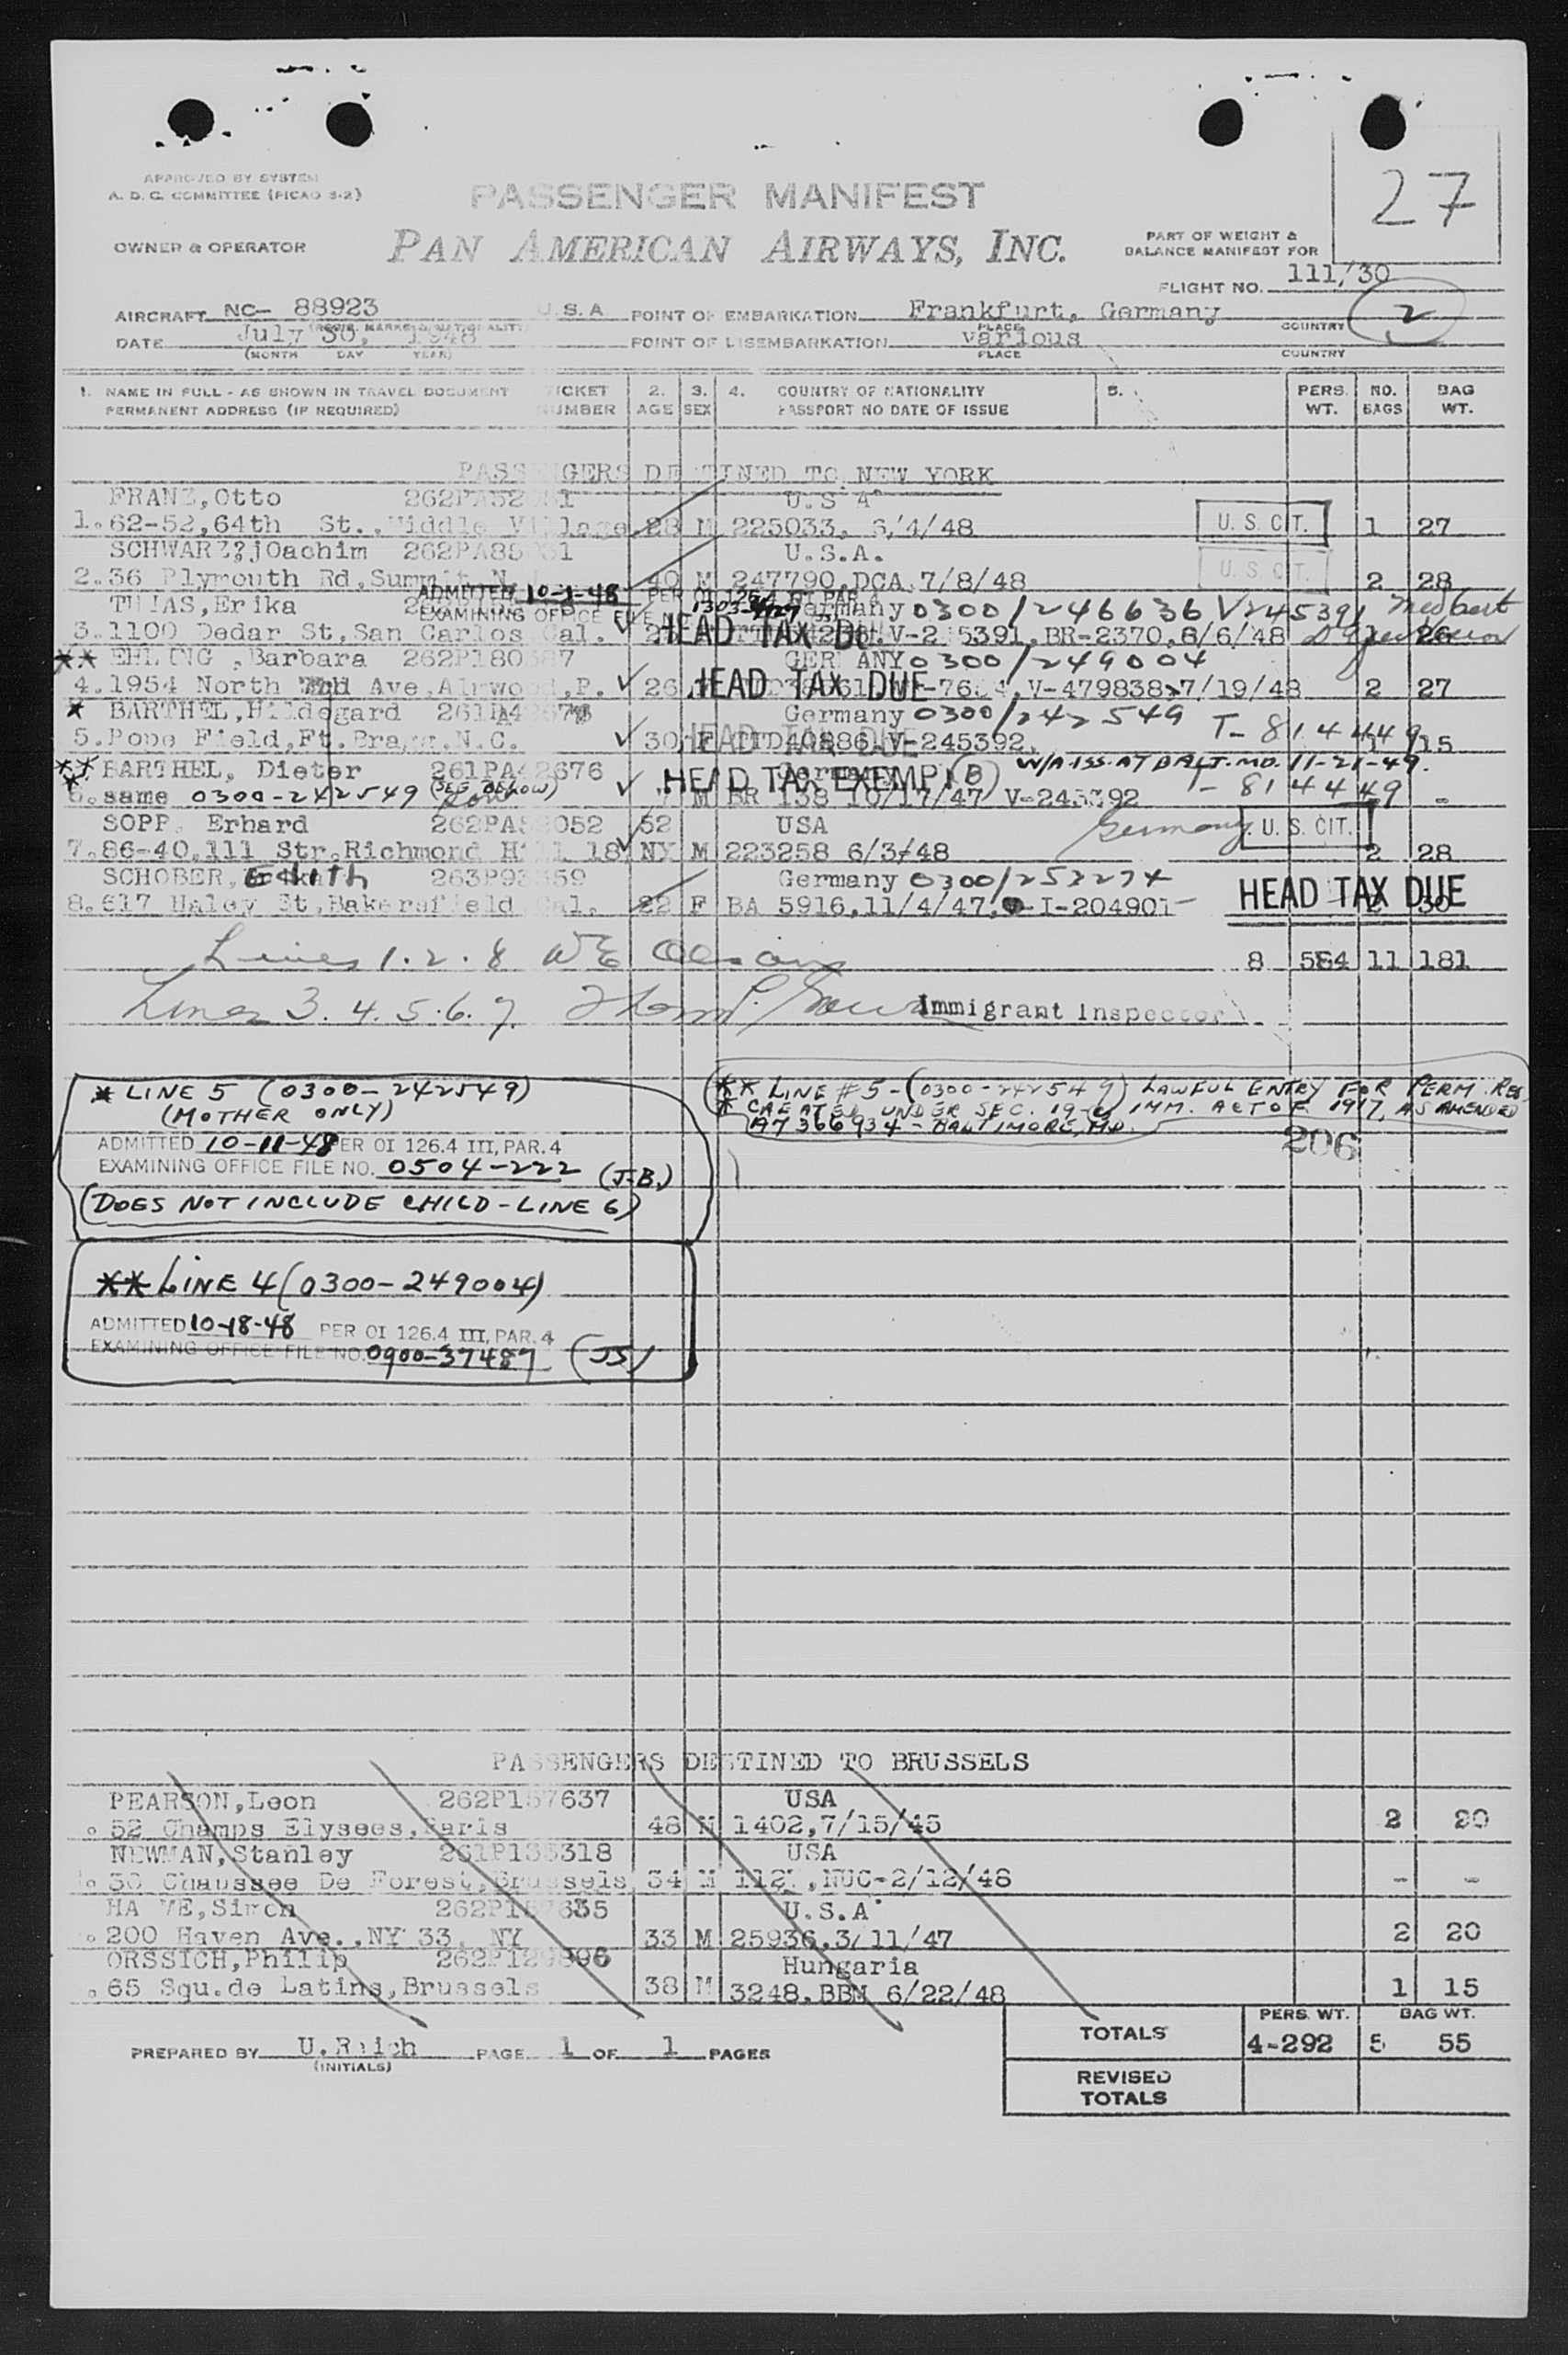 27
APPROVED BY SYSTEM
A. D. C. COMMITTEE (PICAO S-2)
PASSENGER MANIFEST
OWNER & OPERATOR
PAN AMERICAN AIRWAYS, INC.
PART OF WEIGHT &
BALANCE MANIFEST FOR
FLIGHT NO. 111/30
AIRCRAFT NC- 88923 U.S.A POINT OF EMBARKATION Frankfurt, Germany 2
PLACE COUNTRY
DATE July 30, 1948 POINT OF DISEMBARKATION various
(MONTH DAY YEAR) PLACE COUNTRY
1. NAME IN FULL - AS SHOWN IN TRAVEL DOCUMENT TICKET 2. 3. 4. COUNTRY OF NATIONALITY 5. PERS. NO. BAG
PERMANENT ADDRESS (IF REQUIRED) NUMBER AGE SEX PASSPORT NO DATE OF ISSUE WT. BAGS WT.
PASSENGERS DESTINED TO NEW YORK
FRANZ, Otto U.S A
1. 62-52, 64th St., Middle Village 28 M 225033, 6/4/48 U. S. CIT. 1 27
SCHWARZ, jOachim U.S.A.
2. 36 Plymouth Rd, Summit N. 40 M 247790, DCA 7/8/48 U. S. CIT. 2 28
ADMITTED 10-1-48 PER OI 126.4 III PAR. 4
Erika Germany 0300/246636 V245391
EXAMINING OFFICE FILE
3. 1100 Cedar St, San Carlos Cal. HEAD TAX DUE BR-2370, 8/6/48 26
** EHLING, Barbara GERMANY 0300/249004
4. 1954 North Ave, P. 26 HEAD TAX DUE V-479838 7/19/48 2 27
* BARTHEL, Hildegard Germany 0300/242549 T-814449
5. Pope Field, Ft. Bragg, N.C. 30 F HEAD TAX DUE V-245392 15
** BARTHEL, Dieter 261PA42676 Germany W/A ISS. AT BALT. MD. 11-21-49.
6. same 0300-242549 (SEE BELOW) 7 M HEAD TAX EXEMPT (B) BR 138 10/17/47 V-245392 T-814449 -
SOPP, Erhard 52 USA Germany U. S. CIT.
7. 86-40, 111 Str, Richmond Hill 18 NY M 223258 6/3/48 2 28
SCHOBER, Edith Germany 0300/253274
8. 617 Haley St, Bakersfield Cal. 22 F BA 5916, 11/4/47, I-204901 HEAD TAX DUE 30
Lines 1. 2. 8 8 11 181
Lines 3. 4. 5. 6. 7 Immigrant Inspector
* LINE 5 (0300-242549)
(MOTHER ONLY)
ADMITTED 10-11-48 PER OI 126.4 III, PAR. 4
EXAMINING OFFICE FILE NO. 0504-222 (J.B.)
(DOES NOT INCLUDE CHILD - LINE 6)
** LINE #5 - (0300-242549) LAWFUL ENTRY FOR PERM. RES.
* CREATED UNDER SEC. 19-C IMM. ACT OF 1917, AS AMENDED
A7366934 - BALTIMORE, MD.
206
** LINE 4 (0300-249004)
ADMITTED 10-18-48 PER OI 126.4 III, PAR. 4
EXAMINING OFFICE FILE NO. 0900-37487 (JS)
PASSENGERS DESTINED TO BRUSSELS
PEARSON, Leon 262P157637 USA
52 Champs Elysees, Paris 48 M 1402, 7/15/45 2 20
NEWMAN, Stanley USA
Chaussee De Forest, Brussels 34 M NUC-2/12/48 - -
Simon U.S.A
200 Haven Ave., NY 33, NY 33 M 25936, 3/11/47 2 20
ORSSICH, Philip Hungaria
65 Squ. de Latins, Brussels 38 M 3248, BBM 6/22/48 1 15
TOTALS PERS. WT. BAG WT.
4-292 5 55
PREPARED BY U. Reich PAGE 1 OF 1 PAGES
(INITIALS)
REVISED
TOTALS